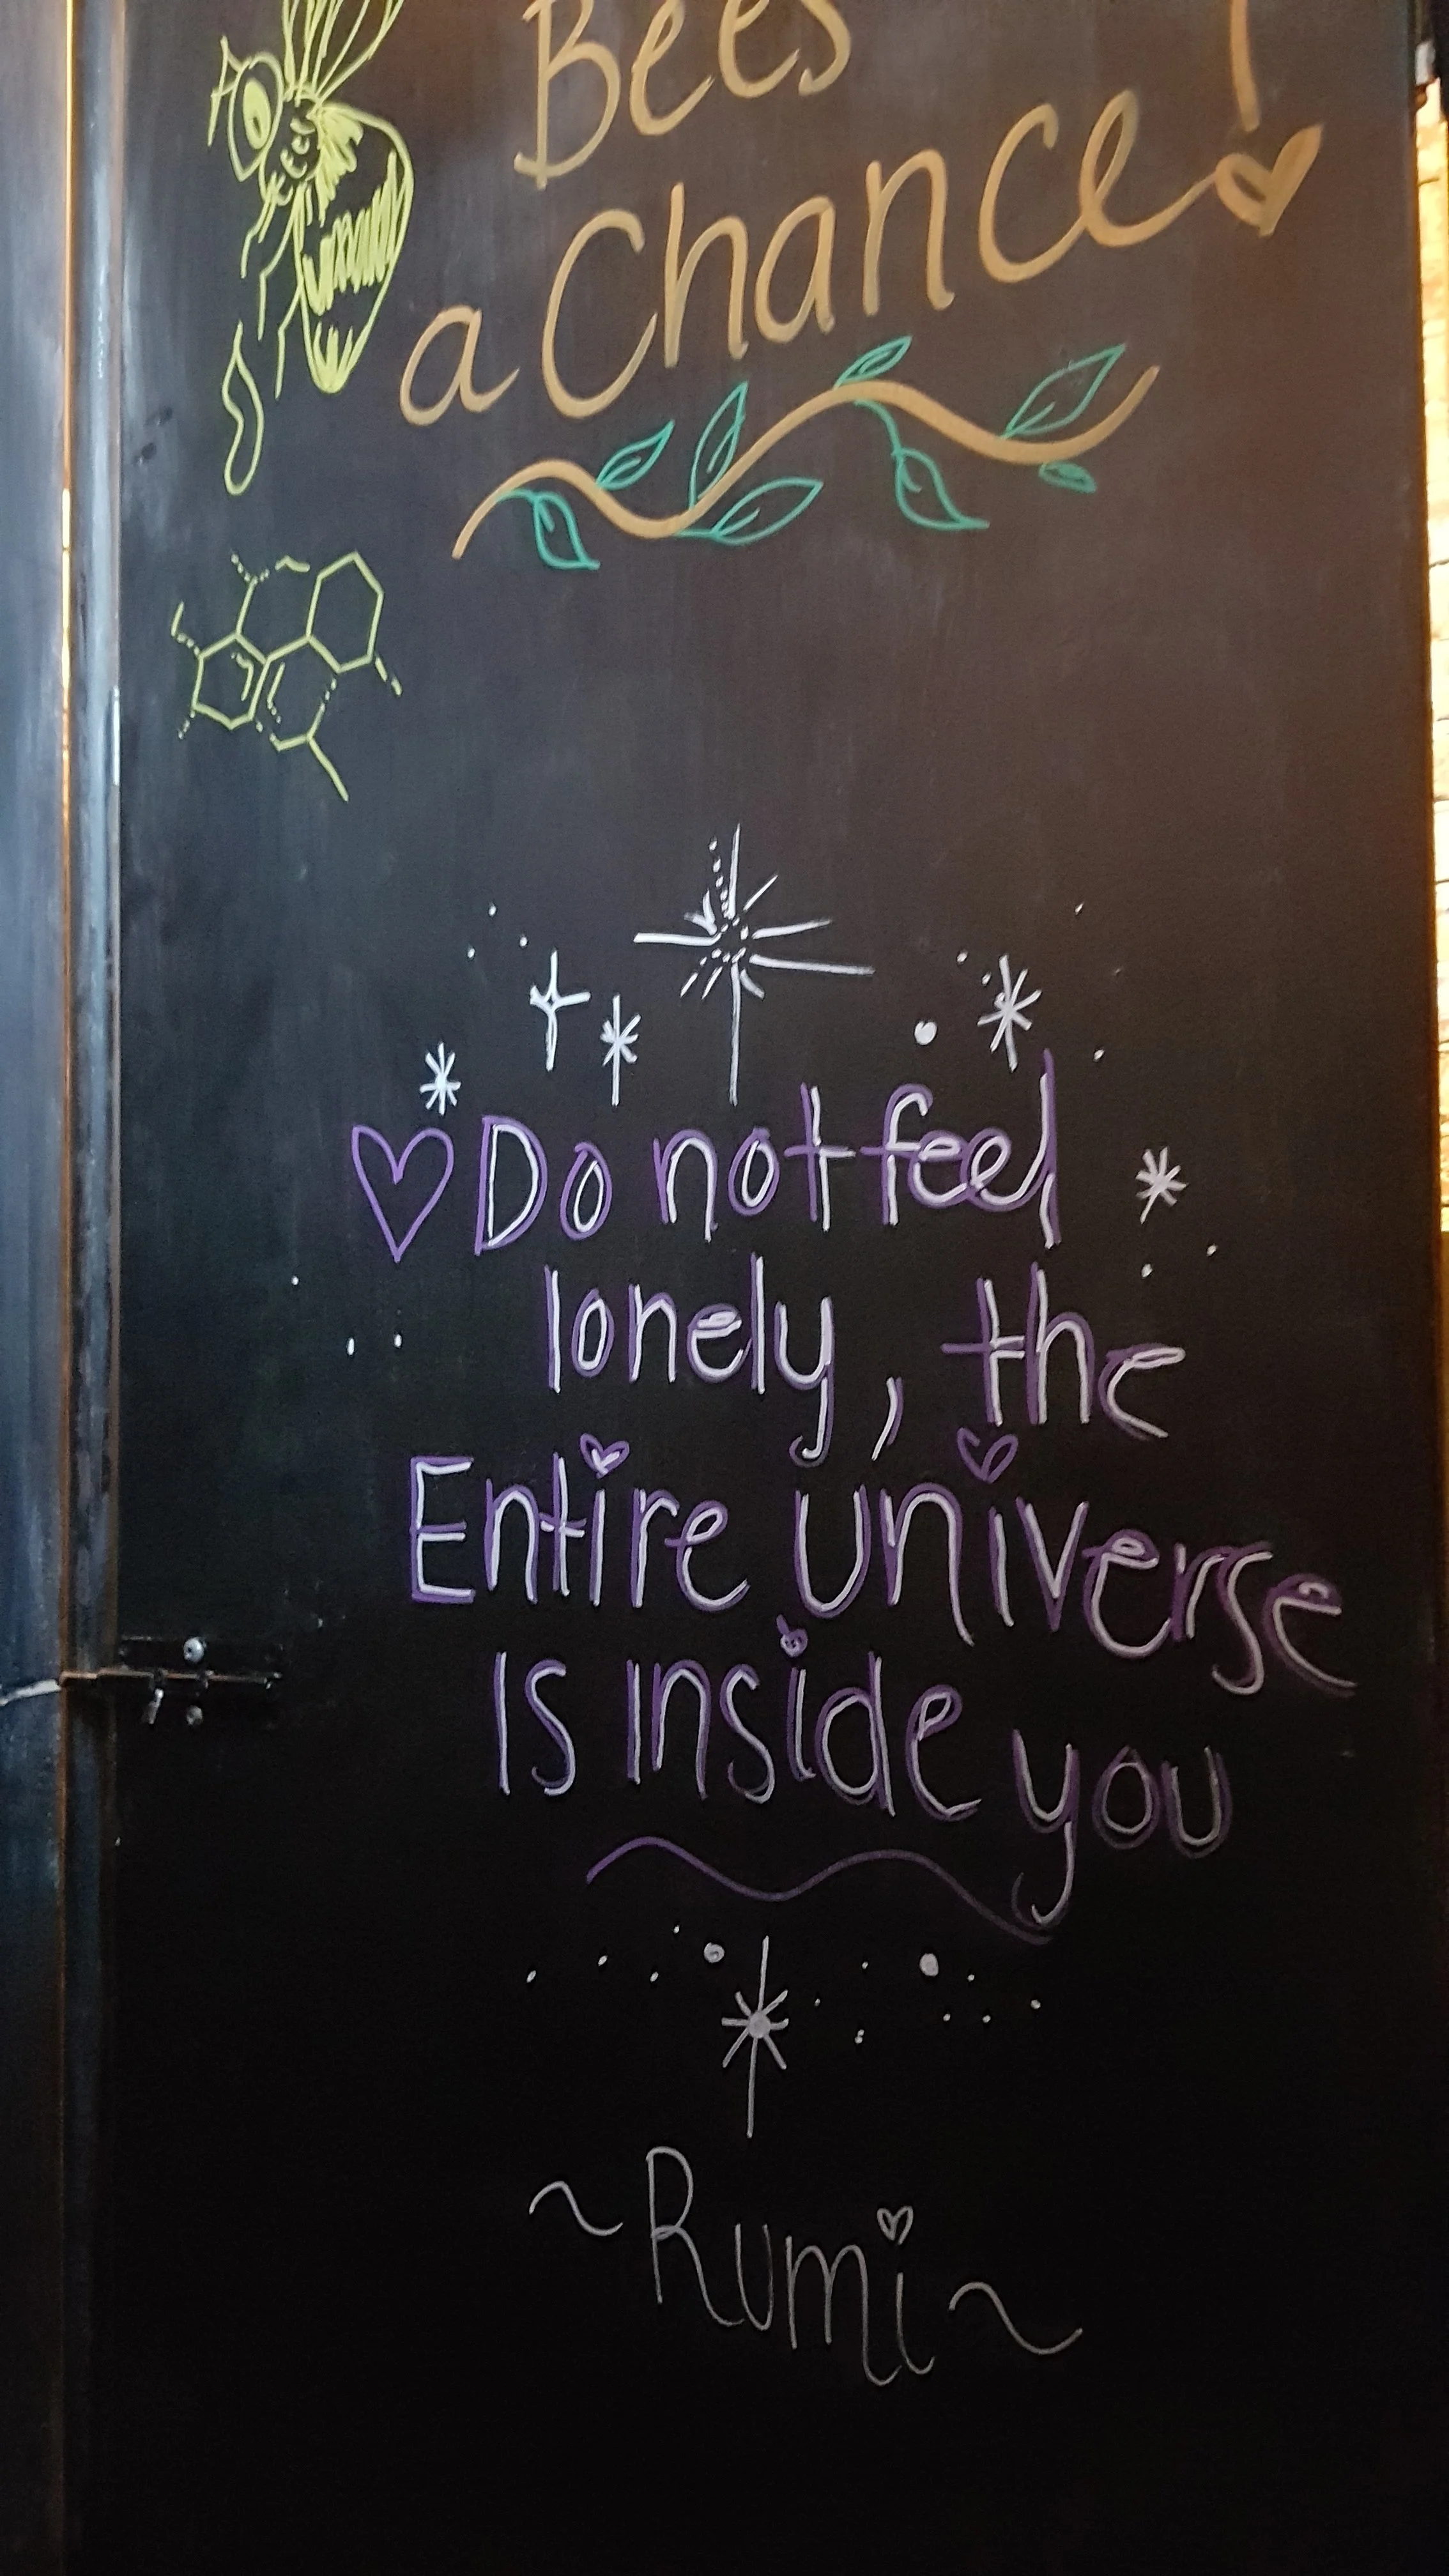 Bees
a Chance!
Do not feel
lonely, the
Entire universe
Is inside you
~Rumi~